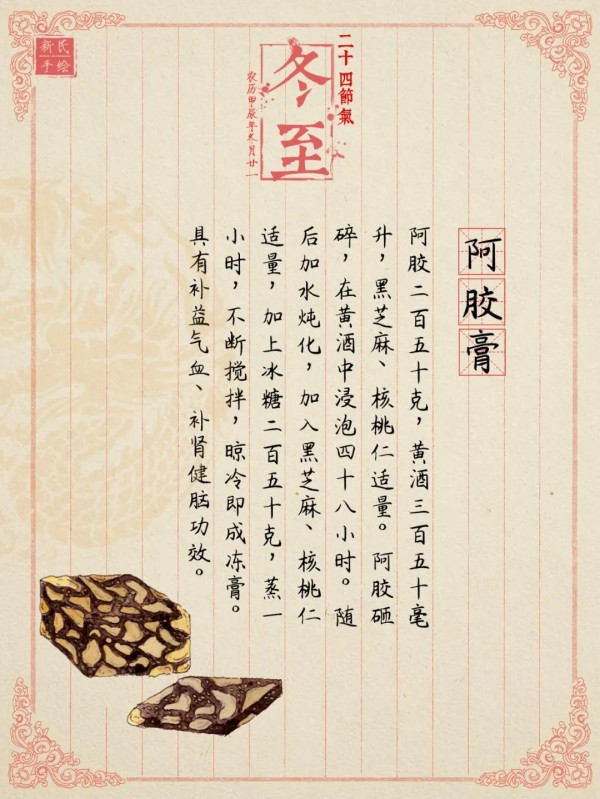 新民
手绘
二十四節氣
冬至
农历甲辰年冬月廿一
阿胶膏
阿胶二百五十克，黄酒三百五十毫
升，黑芝麻、核桃仁适量。阿胶砸
碎，在黄酒中浸泡四十八小时。随
后加水炖化，加入黑芝麻、核桃仁
适量，加上冰糖二百五十克，蒸一
小时，不断搅拌，晾冷即成冻膏。
具有补益气血、补肾健脑功效。